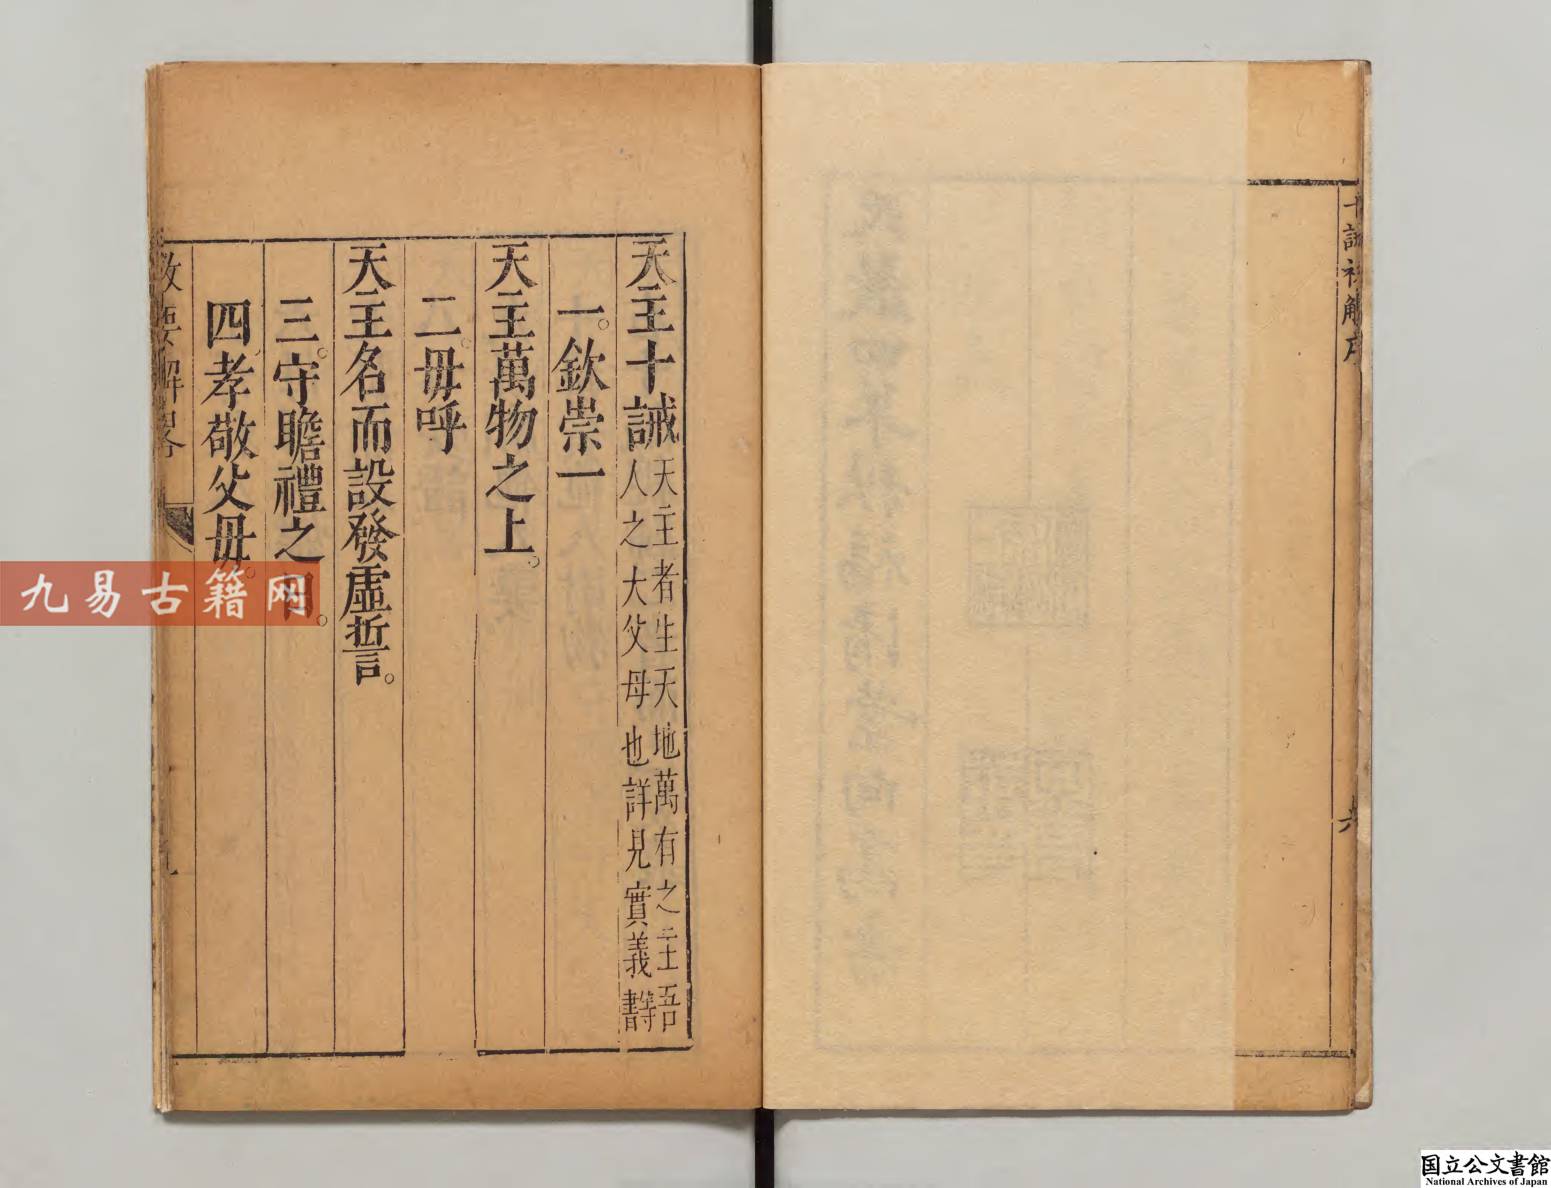 十誡初解序
六
天主十誡天主者生天地萬有之主吾人之大父母也詳見實義等書
一。欽崇一
天主萬物之上。
二。毋呼
天主名而設發虛誓。
三。守瞻禮之日。
四。孝敬父毋。
教要解畧
九易古籍网
国立公文書館
National Archives of Japan